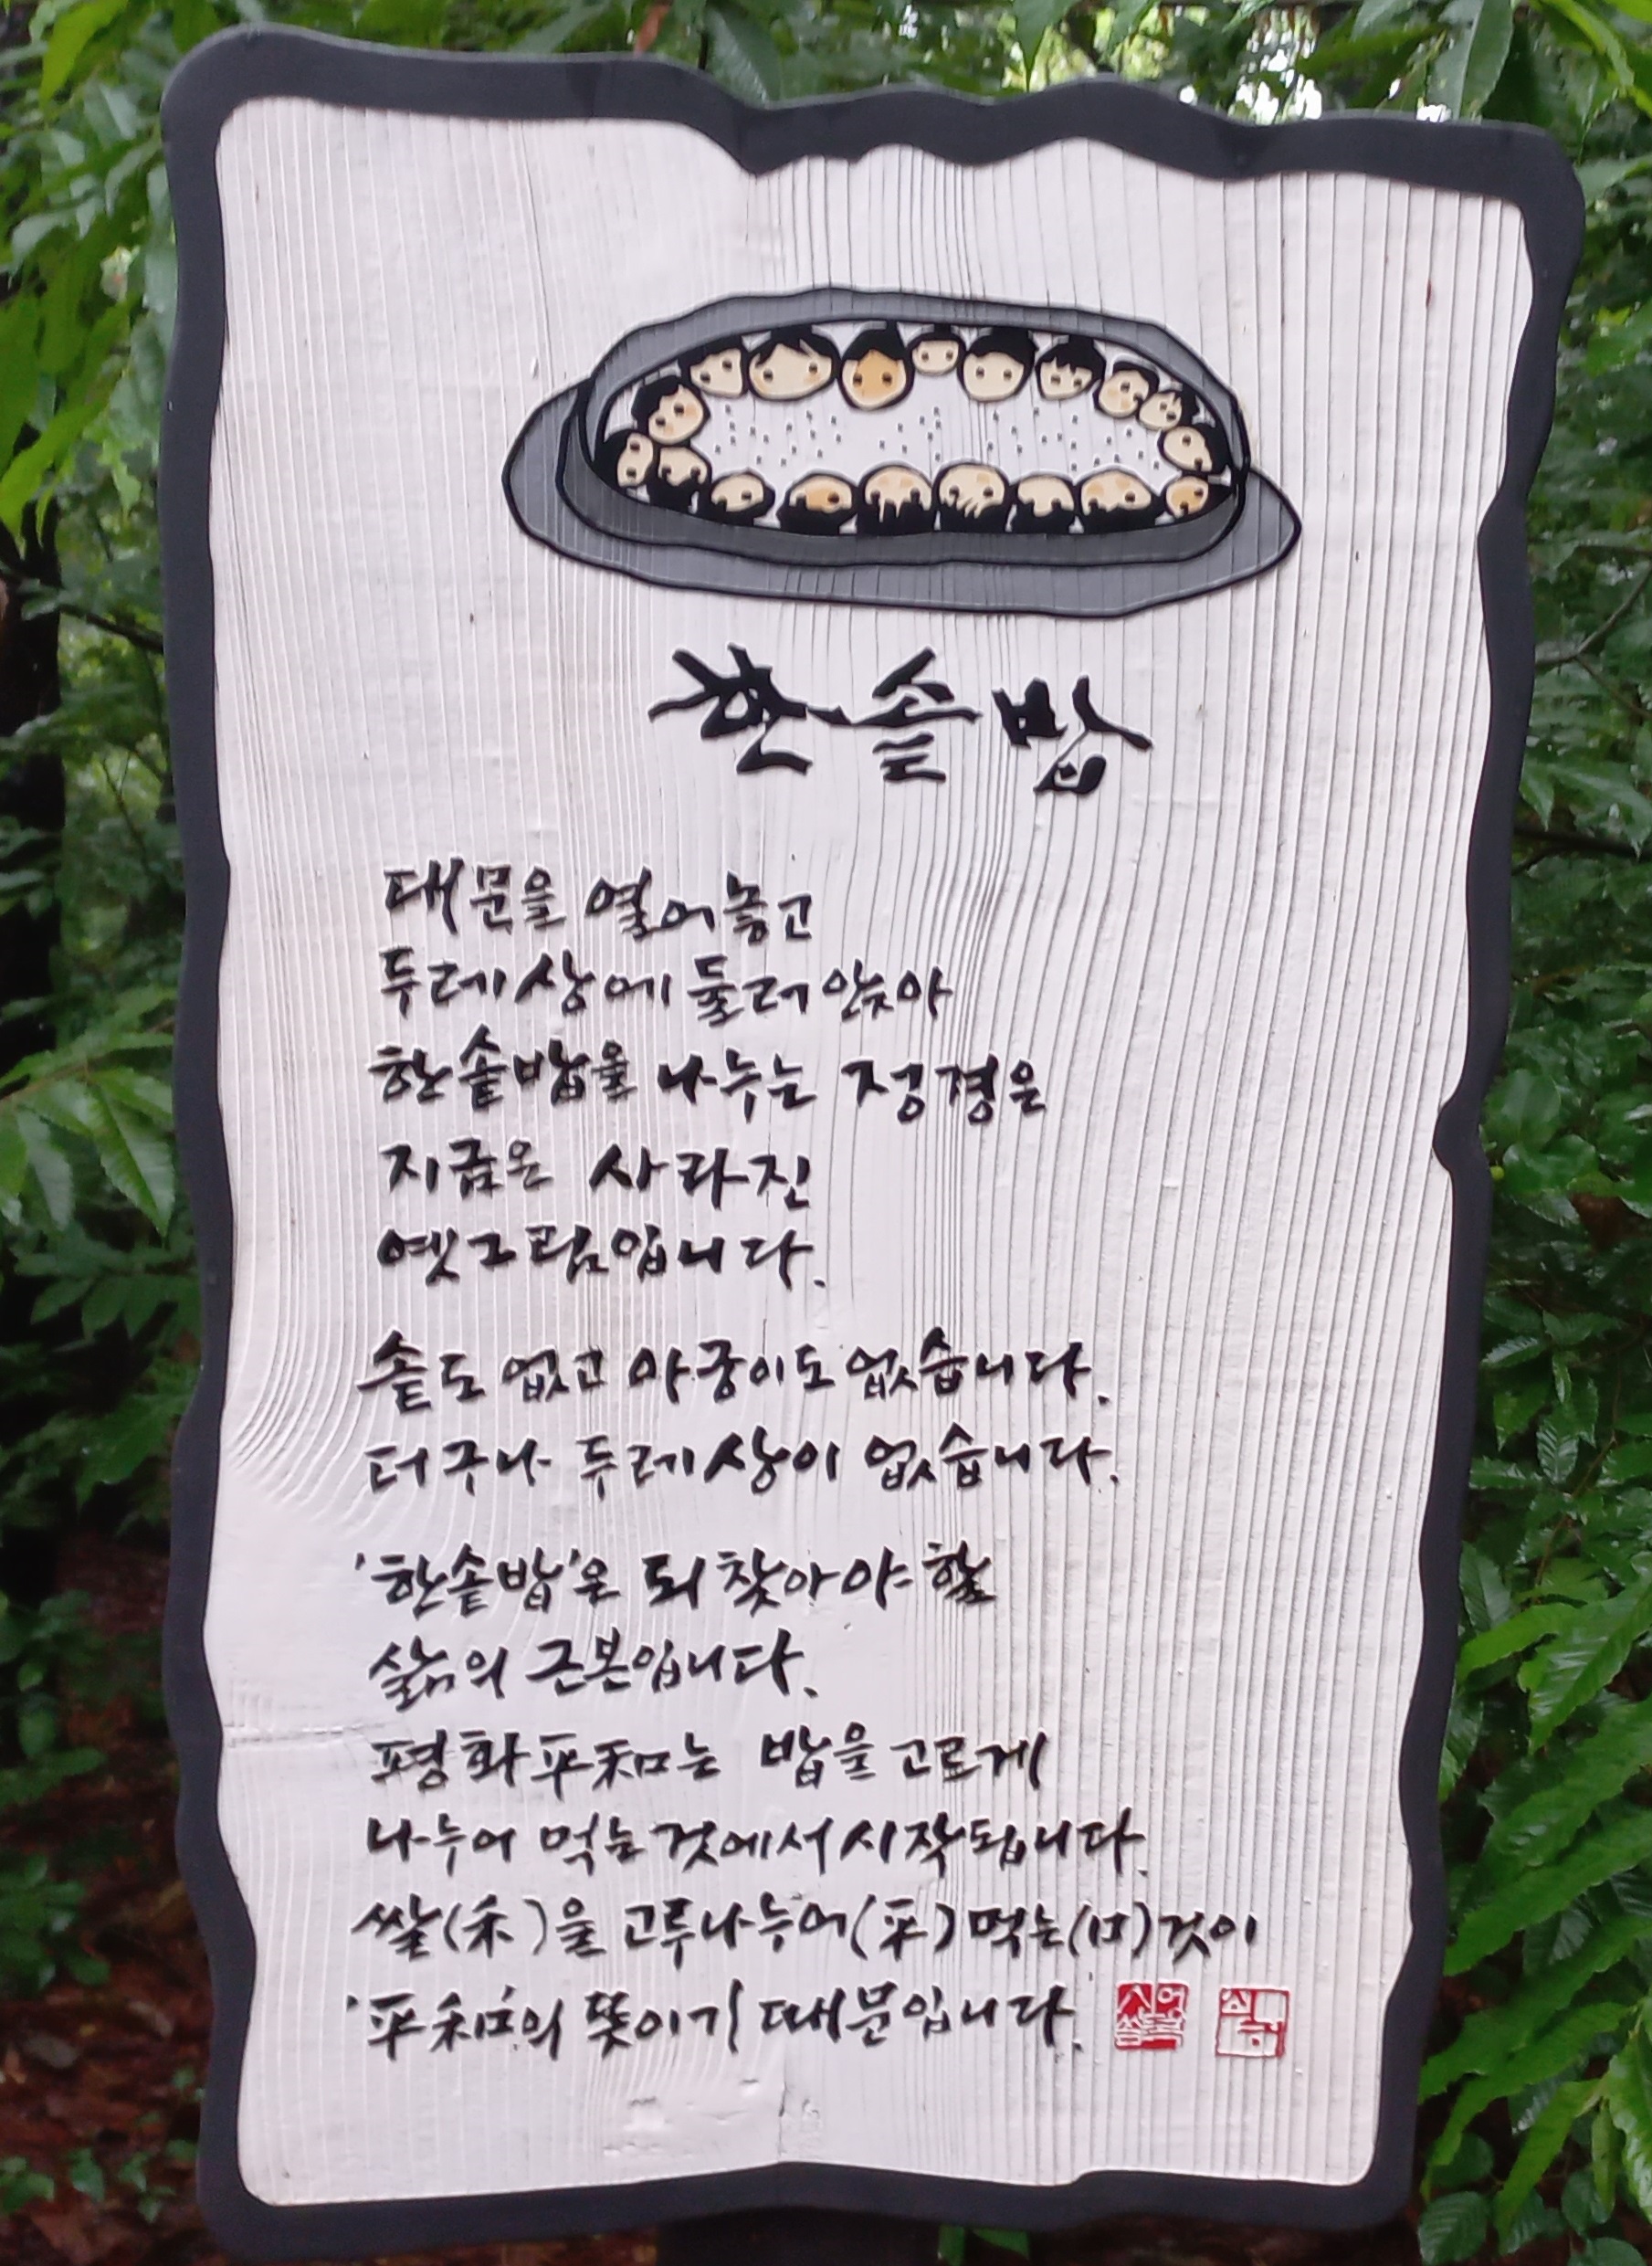 한솥밥
대문을 열어놓고
두레상에 둘러앉아
한솥밥을 나누는 정경은
지금은 사라진
옛그림입니다.
솥도 없고 아궁이도 없습니다.
더구나 두레상이 없습니다.
'한솥밥'은 되찾아야 할
삶의 근본입니다.
평화平和는 밥을 고르게
나누어 먹는 것에서 시작됩니다.
쌀(禾)을 고루 나누어(平) 먹는(口) 것이
'平和'의 뜻이기 때문입니다.